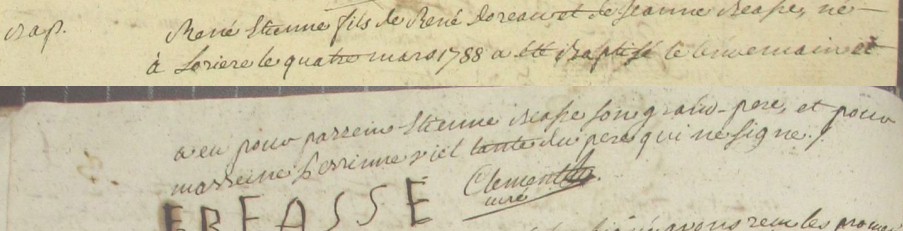 Bap.
René Etienne fils de René Doreau et de Jeanne Reasse, né
à Loriere le quatre mars 1788 a été Baptisé le lendemain et
a eu pour parrein Etienne Reasse son grand-pere, et pour
marreine Perrinne riel tante du pere qui ne signe./
E REASSE Clement
curé
avons recu les promes